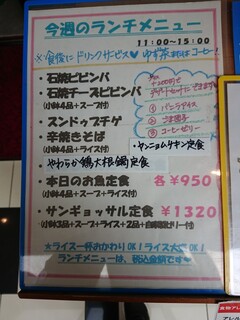 今週のランチメニュー
11:00～15:00
※食後にドリンクサービス♥ゆず茶 または コーヒー!
・石焼ビビンバ
・石焼チーズビビンバ
(小鉢4品+スープ付)
①バニラアイス
②ごま団子
③コーヒーゼリー
・スンドゥブチゲ
・辛焼きそば
(小鉢4品+スープ+ライス付)
・ヤンニョムチキン定食
・やわらか鶏大根鍋定食
・本日のお魚定食 各¥950
(小鉢4品+スープ+ライス付)
・サンギョッサル定食 ¥1320
(小鉢3品+スープ+ライス+2品+白胡麻ゼリー付)
★ライス一杯おかわりOK!ライス大盛OK!
ランチメニューは、税込金額です♥